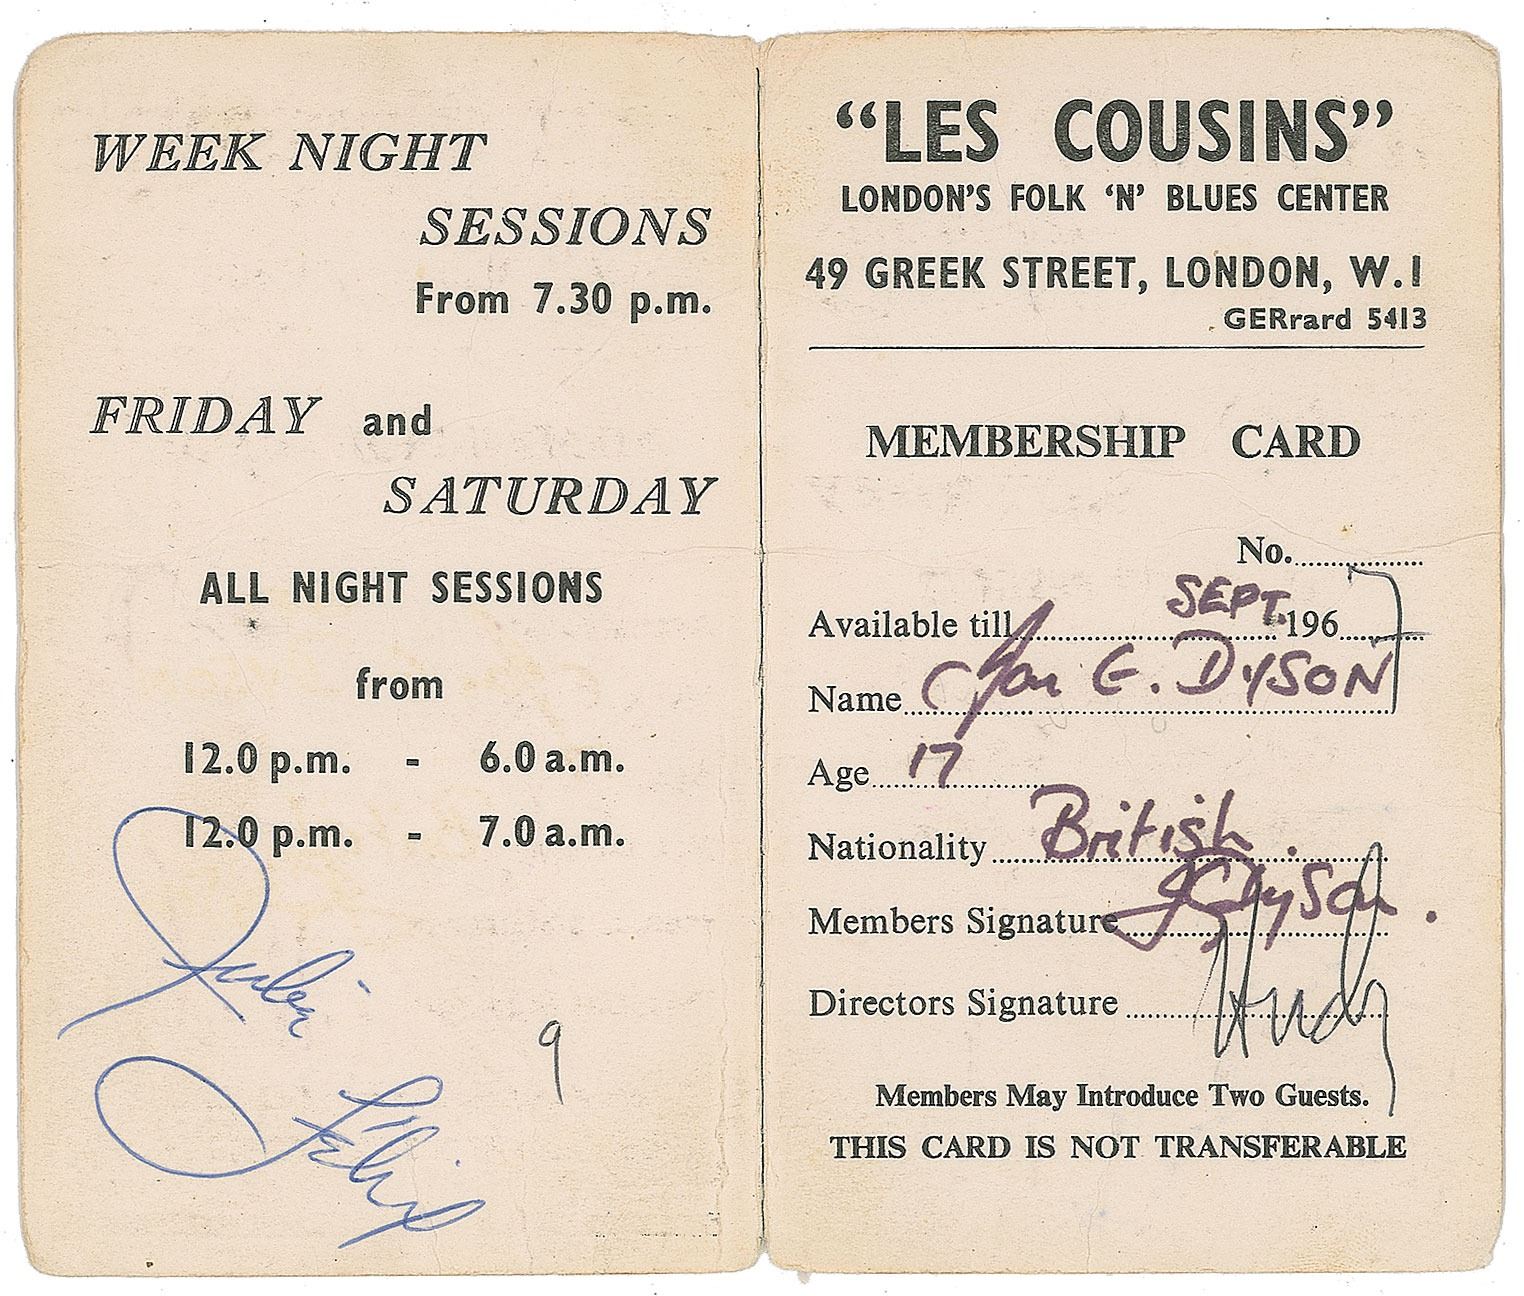 WEEK NIGHT
SESSIONS
From 7.30 p.m.
FRIDAY and
SATURDAY
ALL NIGHT SESSIONS
from
12.0 p.m. - 6.0 a.m.
12.0 p.m. - 7.0 a.m.
Julien
9
Felix
“LES COUSINS”
LONDON’S FOLK ‘N’ BLUES CENTER
49 GREEK STREET, LONDON, W.1
GERrard 5413
MEMBERSHIP CARD
No.
Available till SEPT. 1967
Name Jon G. DYSON
Age 17
Nationality British.
Members Signature J G Dyson.
Directors Signature Andy
Members May Introduce Two Guests.
THIS CARD IS NOT TRANSFERABLE